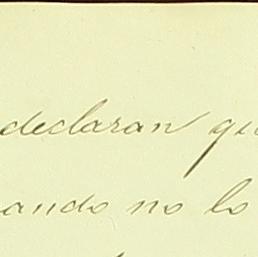 declaran qu
ando no lo